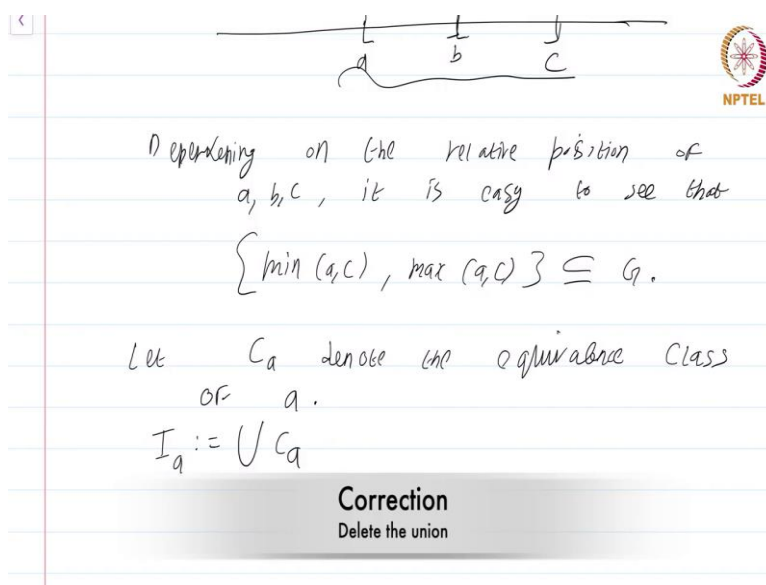 a b c
NPTEL
Depending on the relative position of
a, b, c, it is easy to see that
{ min (a,c), max (a,c) } ⊆ G.
Let Ca denote the equivalence class
of a.
Ia := ∪ Ca
Correction
Delete the union